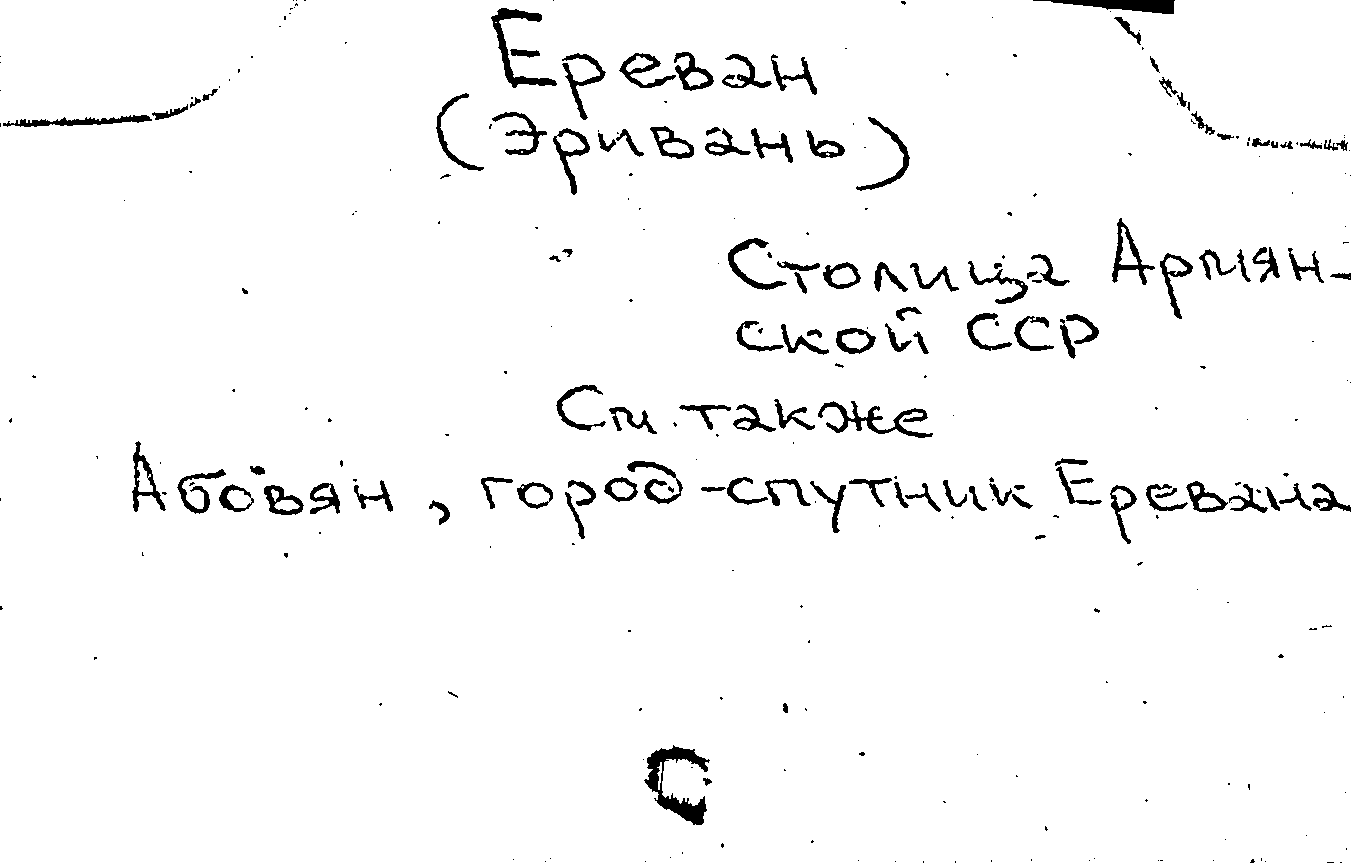 Ереван
(Эривань)
Столица Армян-
ской ССР
См. также
Абовян, город-спутник Еревана